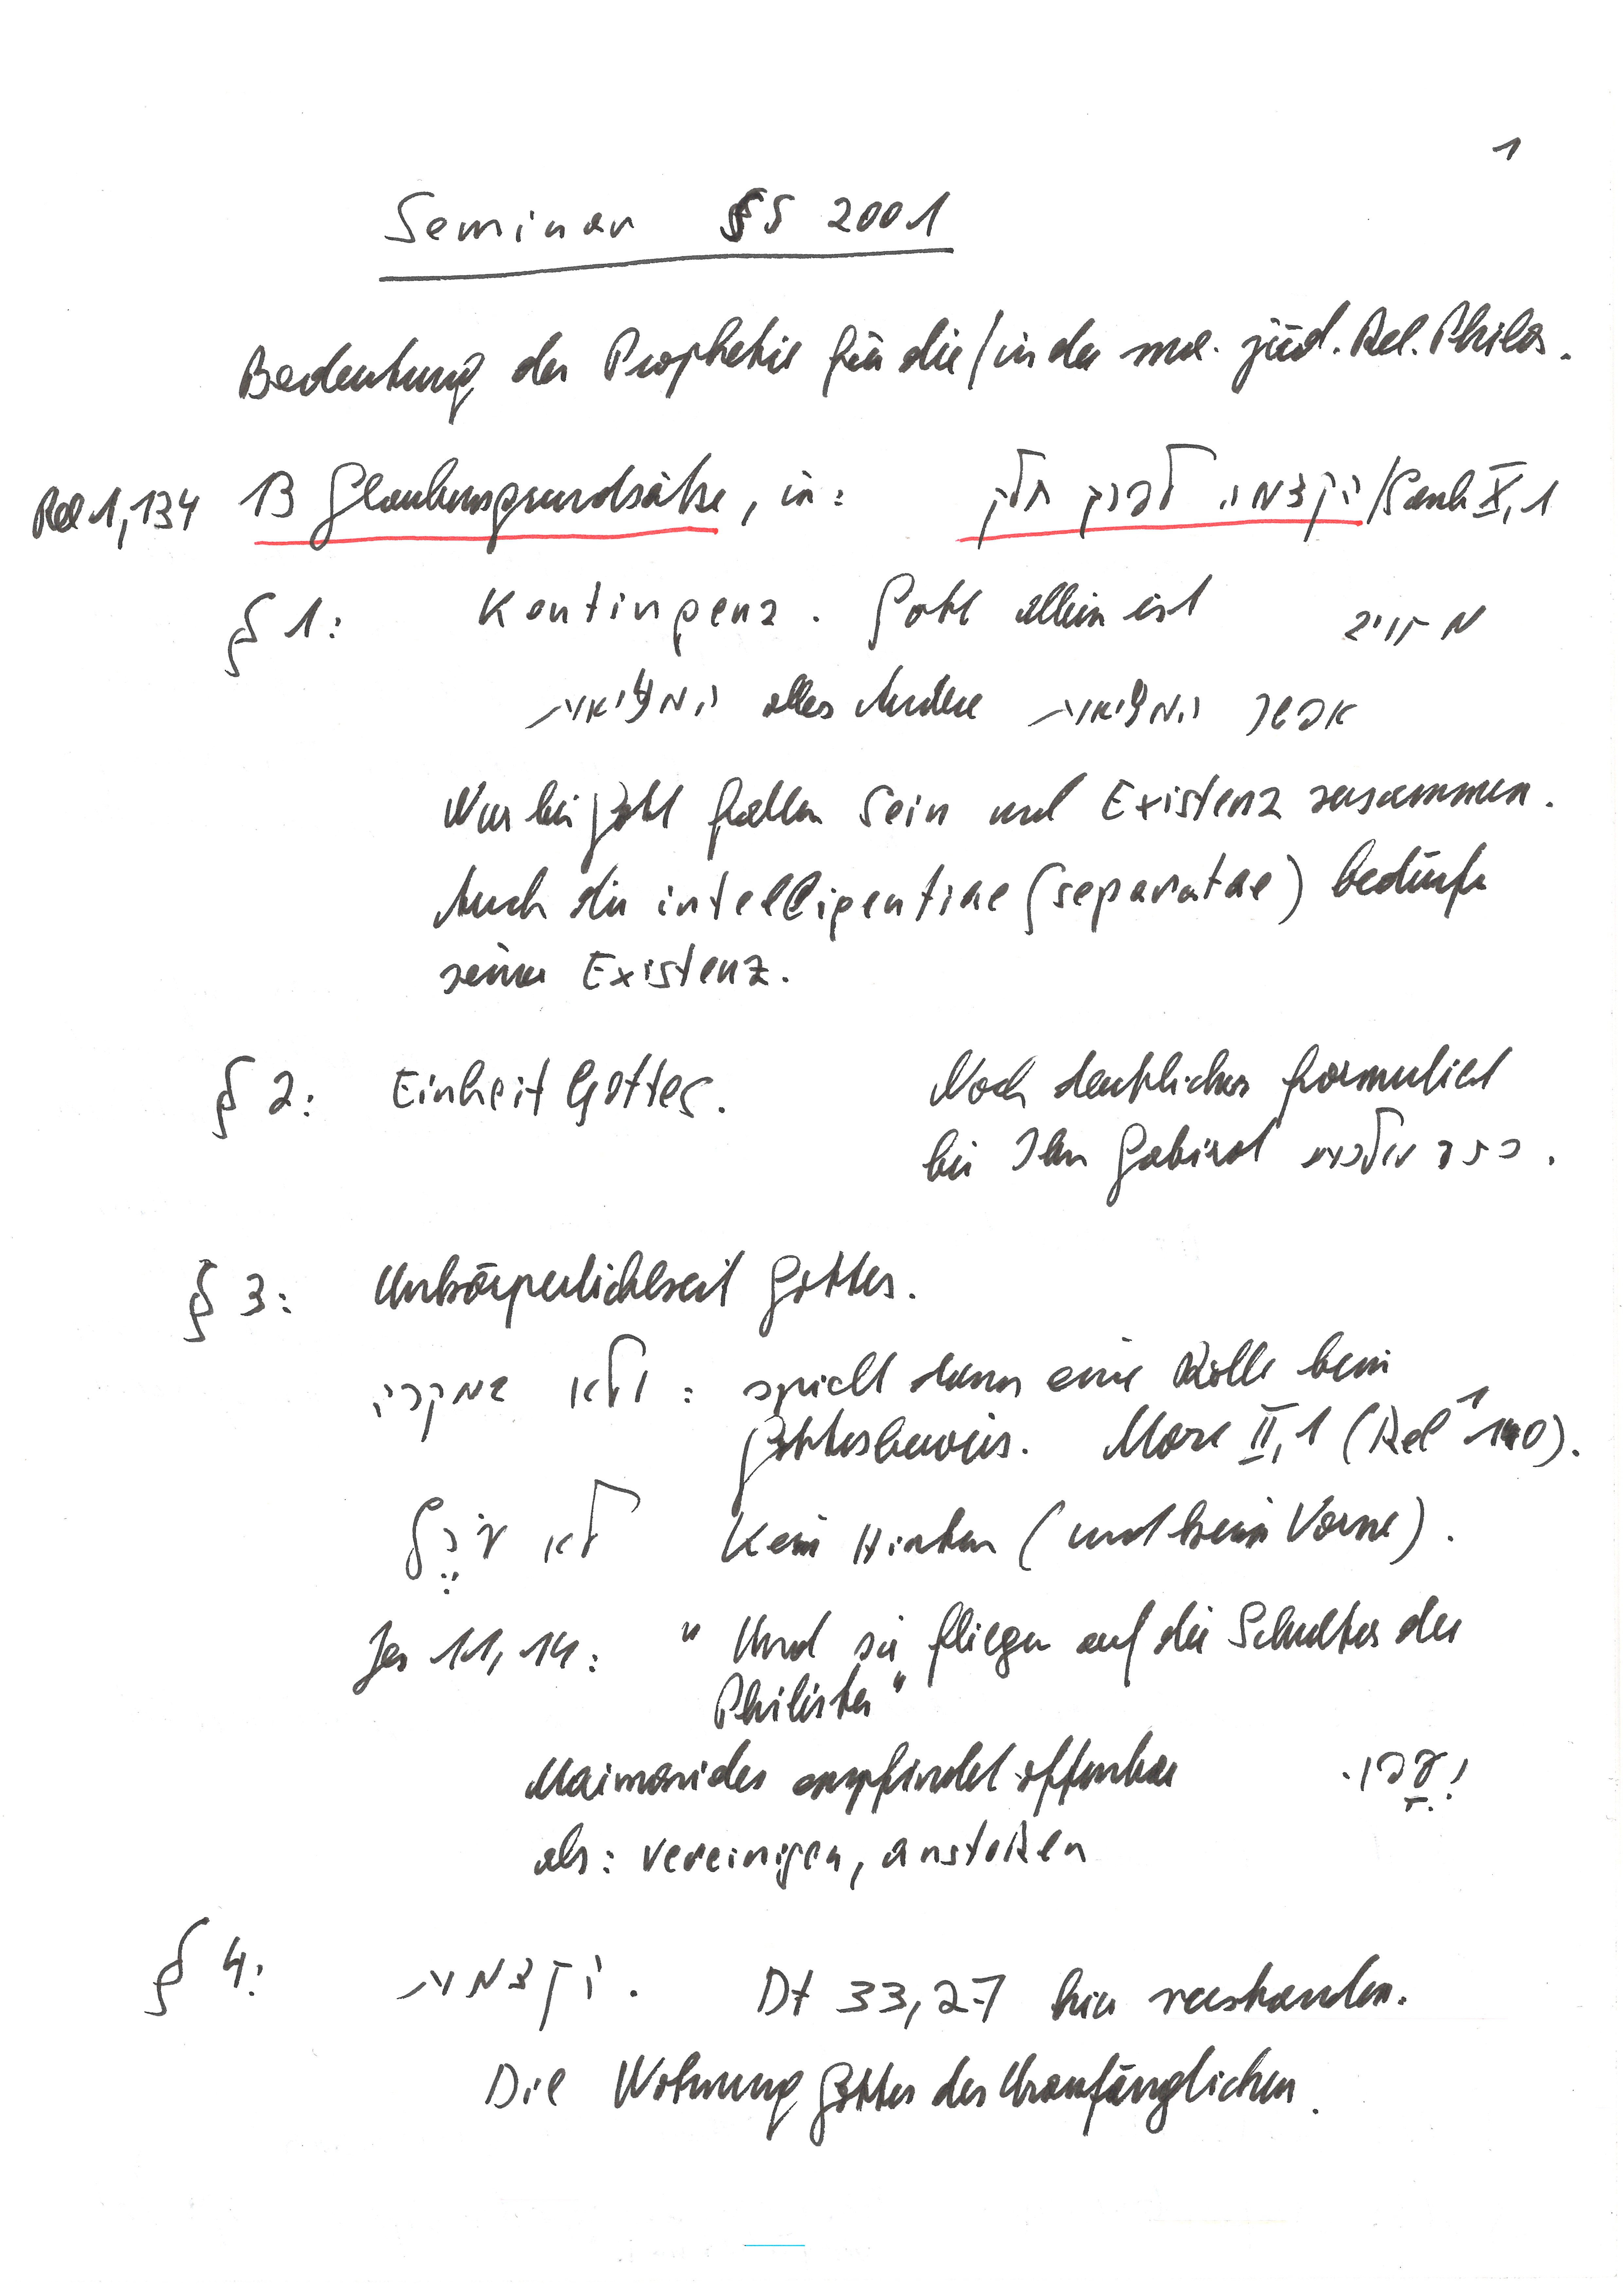 1
Seminar SS 2001
Bedeutung der Prophetie für die/in der ma. jüd. Rel. Philos.
Rel 1,134 13 Glaubensgrundsätze, in: הקדמה לפרק חלק/Sanh X,1
§ 1: Kontingenz. Gott allein ist מחוייב
המציאות alles Andere אפשר המציאות
Nur bei Gott fallen Sein und Existenz zusammen.
Auch die intelligentiae (separatae) bedürfen
seiner Existenz.
§ 2: Einheit Gottes. Noch deutlicher formuliert
bei Ibn Gabirol כתר מלכות.
§ 3: Unkörperlichkeit Gottes.
ולא במקרה: spielt dann eine Rolle beim
Gottesbeweis. More II,1 (Rel 1 140).
לא עי Kein Hinten (und kein Vorne).
Jes 11,14: "Und sie fliegen auf die Schulter der
Philister"
Maimonides empfindet offenbar
als: vereinigen, anstoßen
§ 4: קדמות. Dt 33,27 hier verstanden.
Die Wohnung Gottes des Uranfänglichen.